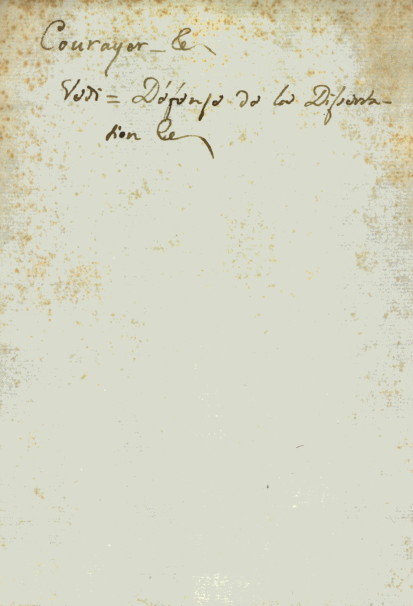 Courayer_ le
Vedi = Défense de la Disserta-
tion &c